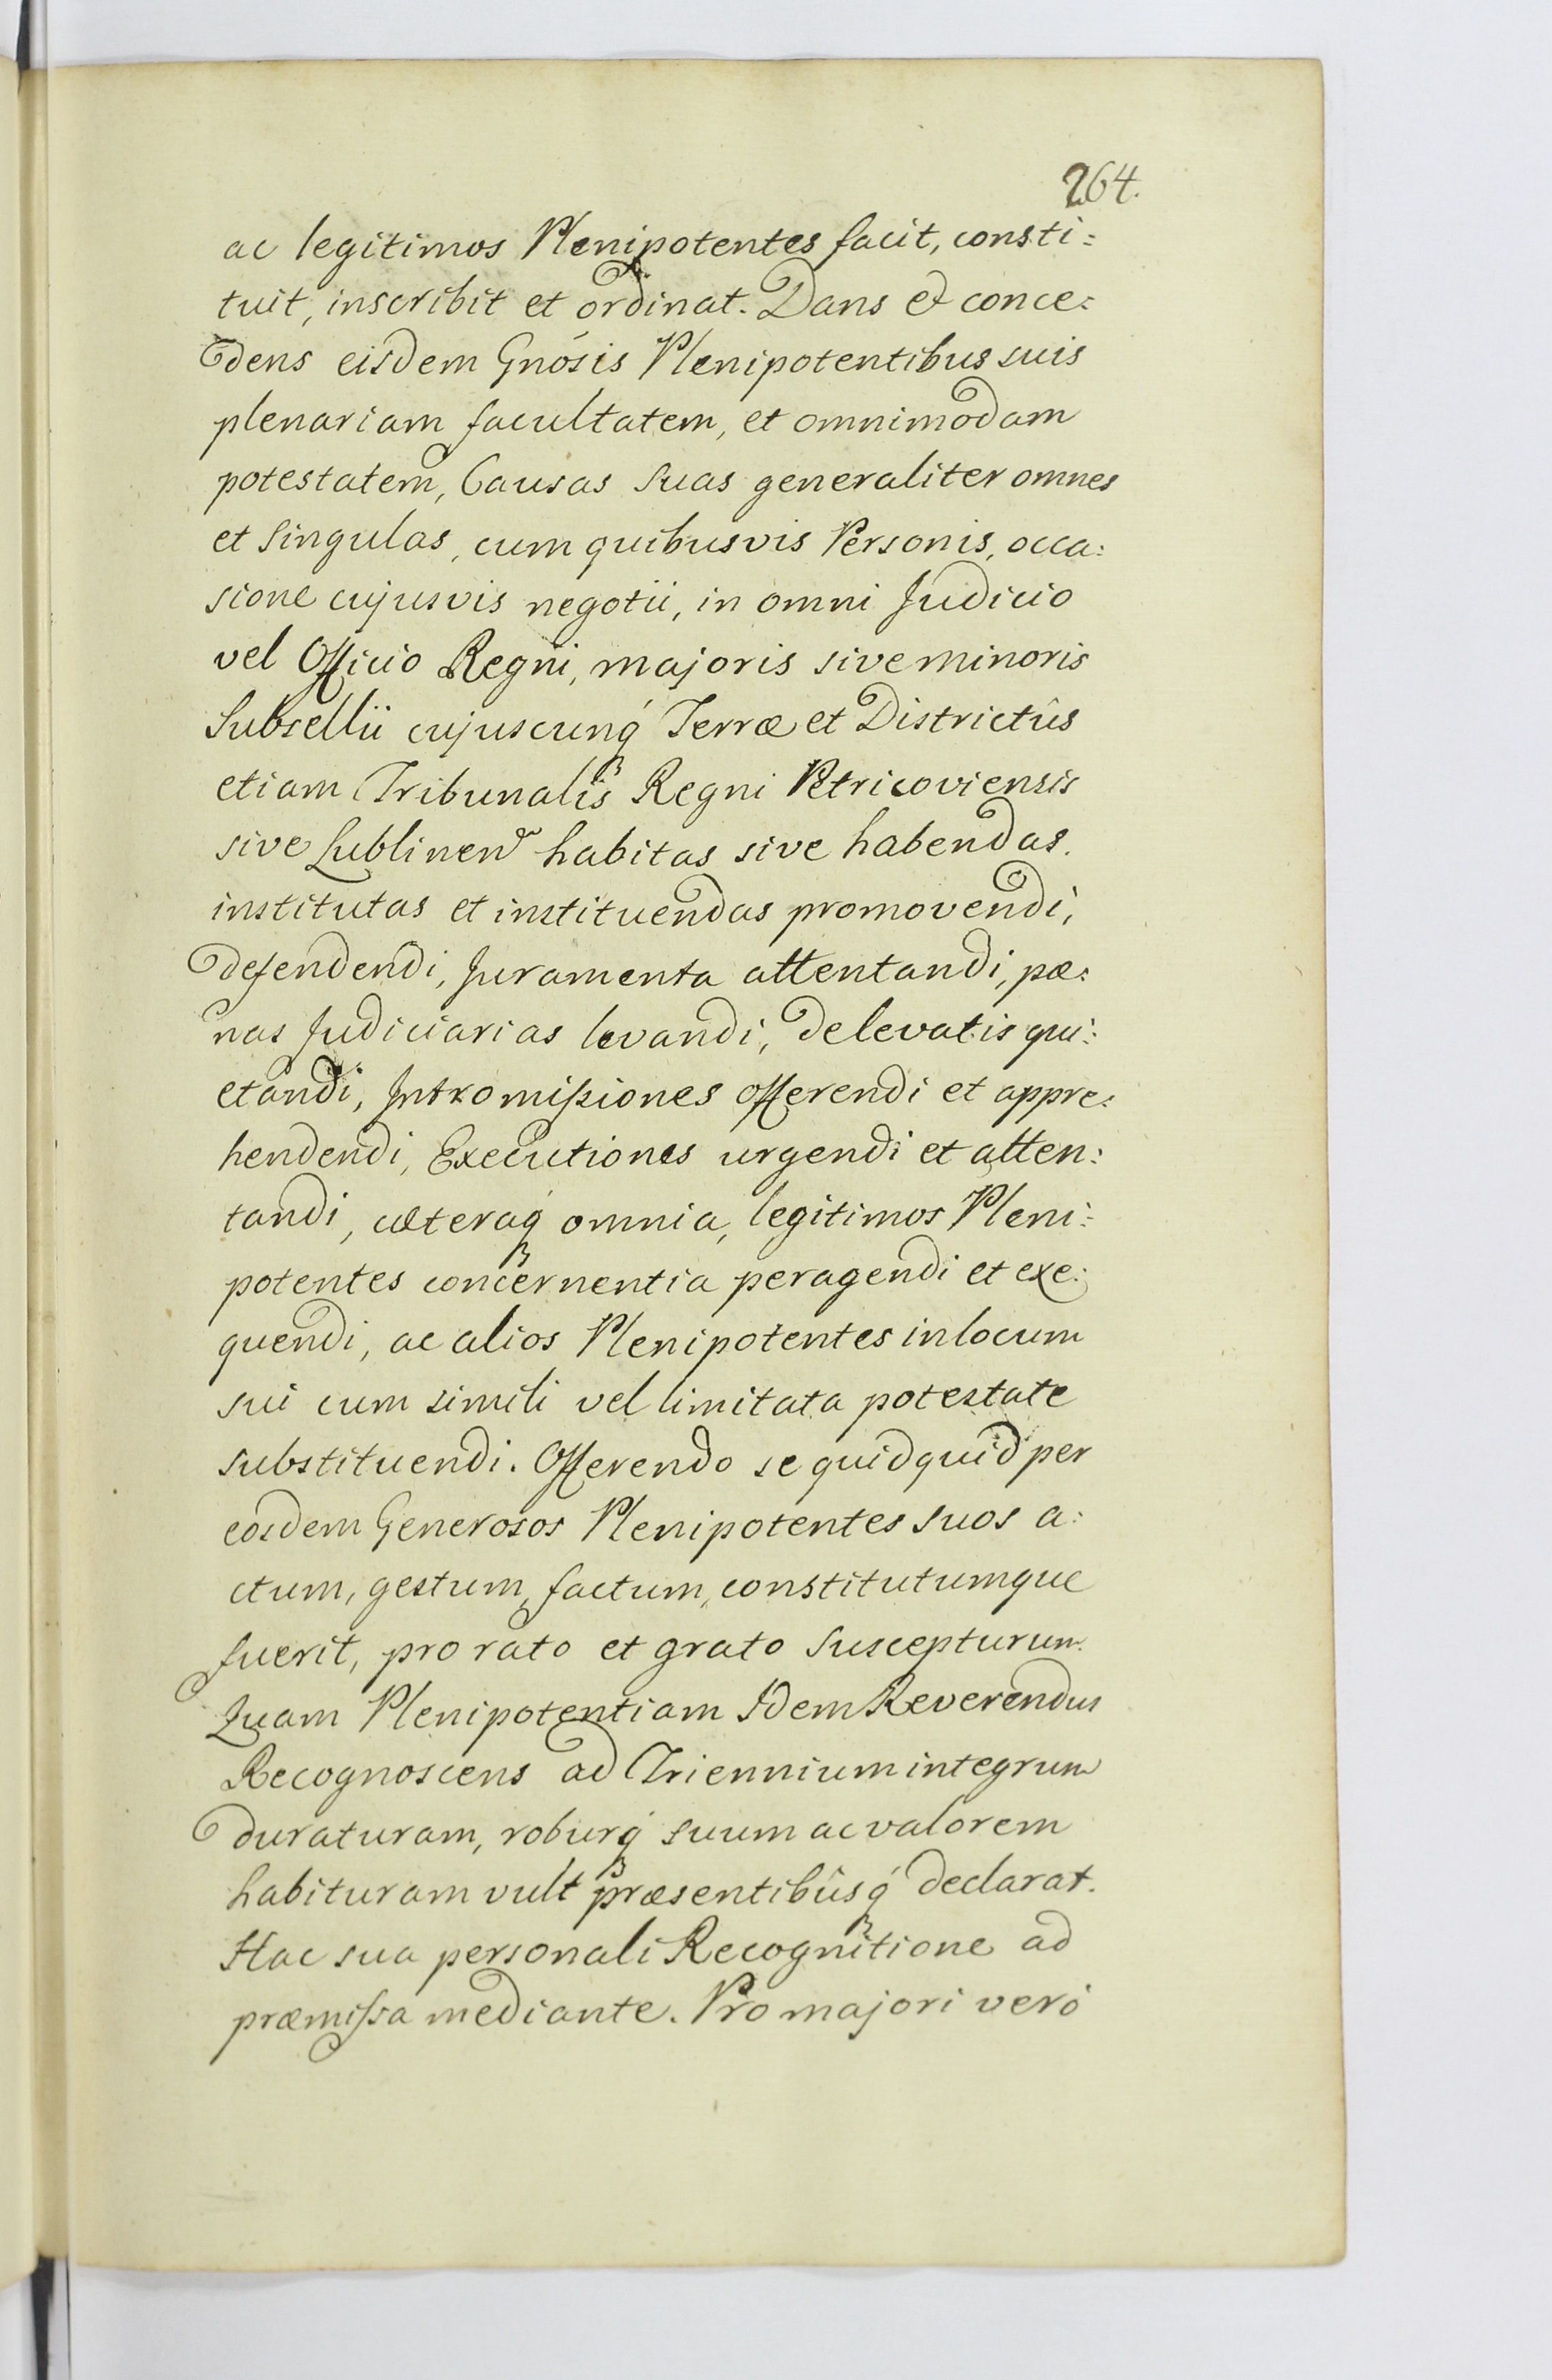 264.
ac legitimos Plenipotentes facit, consti:
tuit, inscribit et ordinat. Dans & conce:
dens eisdem Gnósis Plenipotentibus suis
plenariam facultatem, et omnimodam
potestatem, Causas suas generaliter omnes
et singulas, cum quibusvis Personis, occa:
sione cujusvis negotii, in omni Judicio
vel Officio Regni, majoris sive minoris
Subsellii cujuscunq́ Terræ et Districtûs
etiam Tribunalis Regni Petricoviensis
sive Lublinen habitas sive habendas.
institutas et instituendas promovendi,
defendendi, Juramenta attentandi, pæ:
nas Judiciarias levandi, de levatis qui:
etandi, Intromissiones offerendi et appre:
hendendi, Executiones urgendi et atten:
tandi, cæteraq́ omnia, legitimos Pleni:
potentes concernentia peragendi et exe:
quendi, ac alios Plenipotentes in locum
sui cum simili vel limitata potestate
substituendi. Offerendo se quidquid per
eosdem Generosos Plenipotentes suos a:
ctum, gestum, factum, constitutumque
fuerit, pro rato et grato suscepturum.
Quam Plenipotentiam Idem Reverendus
Recognoscens ad Triennium integrum
duraturam, roburq́ suum ac valorem
habituram vult præsentibûsq́ declarat.
Hac sua personali Recognitione ad
præmissa mediante. Pro majori veró